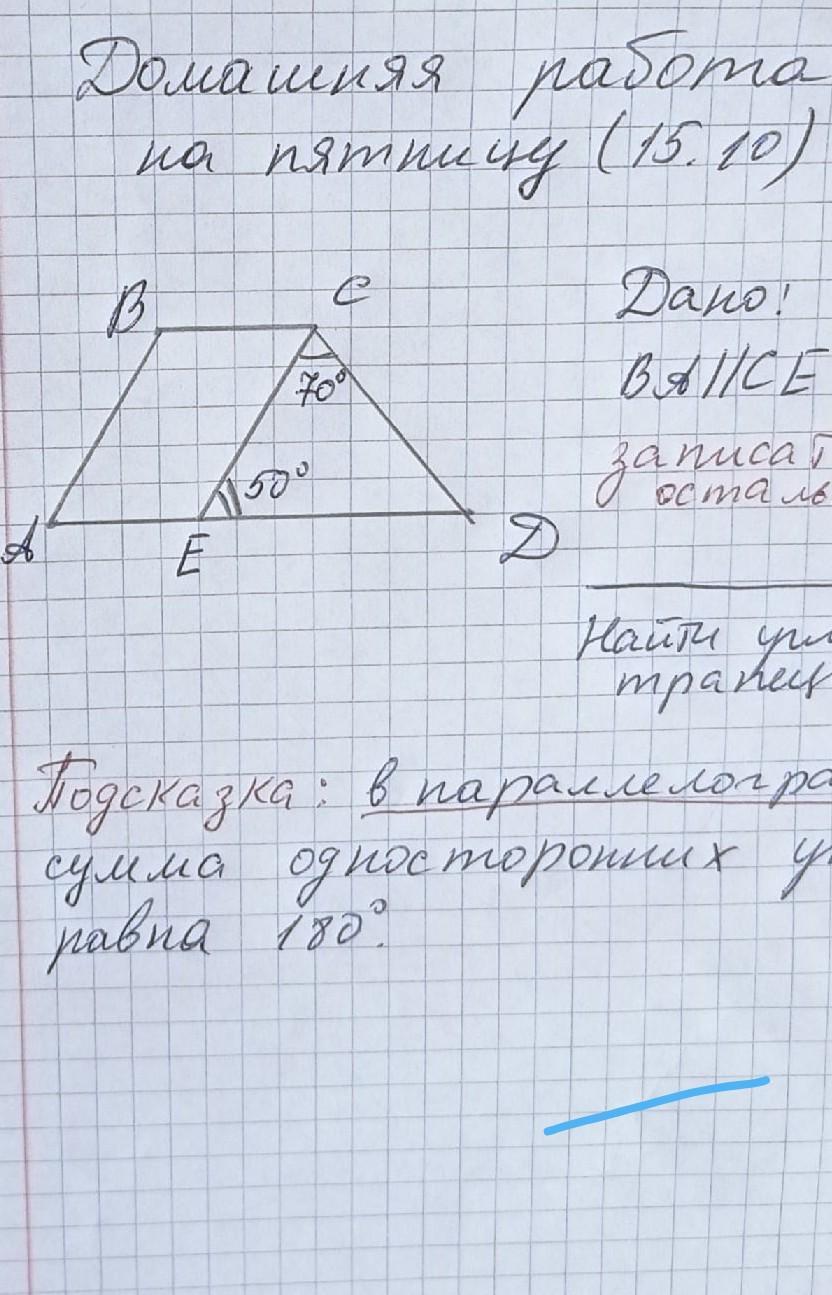 Домашняя работа
на пятницу (15.10)
B C
Дано!
70°
BA||CE
50°
записат
осталь
A E D
Найти угл
трапец
Подсказка: в параллелогра
сумма односторонних уг
равна 180°.